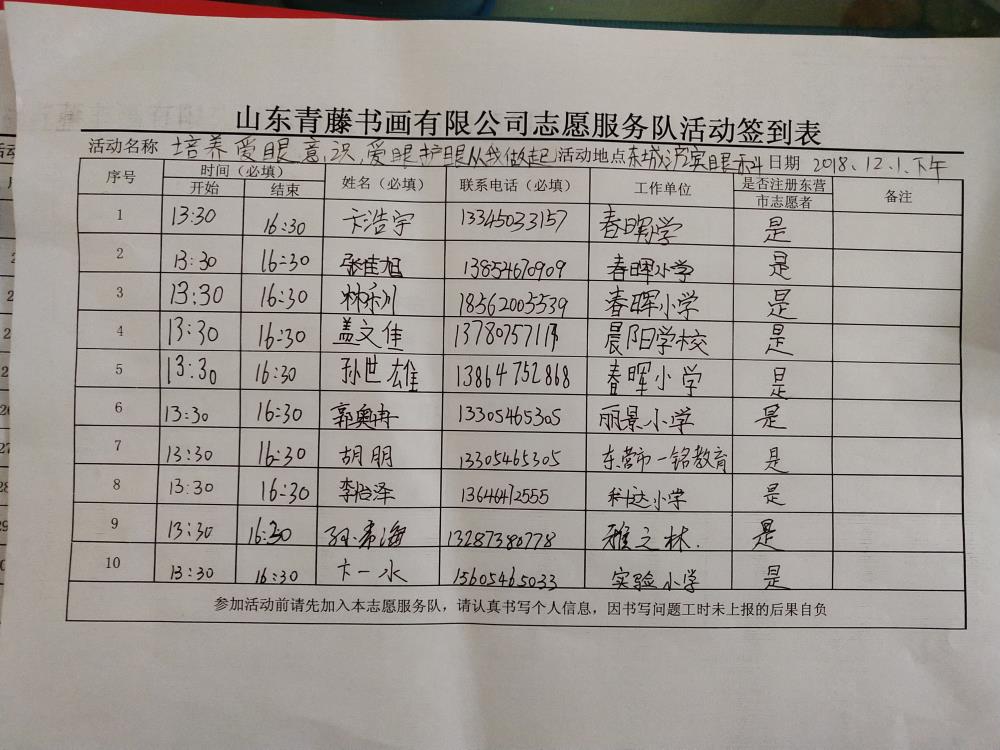 山东青藤书画有限公司志愿服务队活动签到表
活动名称 培养爱眼意识,爱眼护眼从我做起 活动地点 东城 眼科 日期 2018.12.1.下午
序号 时间(必填) 姓名(必填) 联系电话(必填) 工作单位 是否注册东营市志愿者 备注
开始 结束
1 13:30 16:30 卞浩宇 13345033157 春晖小学 是
2 13:30 16:30 张佳旭 13854670909 春晖小学 是
3 13:30 16:30 18562005539 春晖小学 是
4 13:30 16:30 盖文佳 晨阳学校 是
5 13:30 16:30 孙世雄 13864752868 春晖小学 是
6 13:30 16:30 郭奥冉 13305465305 丽景小学 是
7 13:30 16:30 胡朋 13305465305 东营市一铭教育 是
8 13:30 16:30 李怡泽 13646472555 科达小学 是
9 13:30 16:30 13287380778 雅之林. 是
10 13:30 16:30 卞一水 15605465033 实验小学 是
参加活动前请先加入本志愿服务队,请认真书写个人信息,因书写问题工时未上报的后果自负